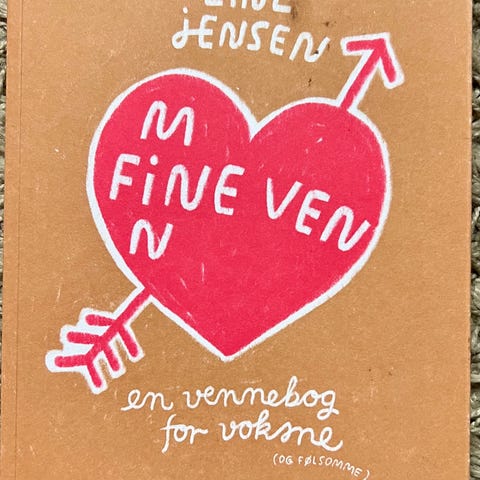 LINE
JENSEN
M
FiNE VEN
N
en vennebog
for voksne
(OG FØLSOMME)